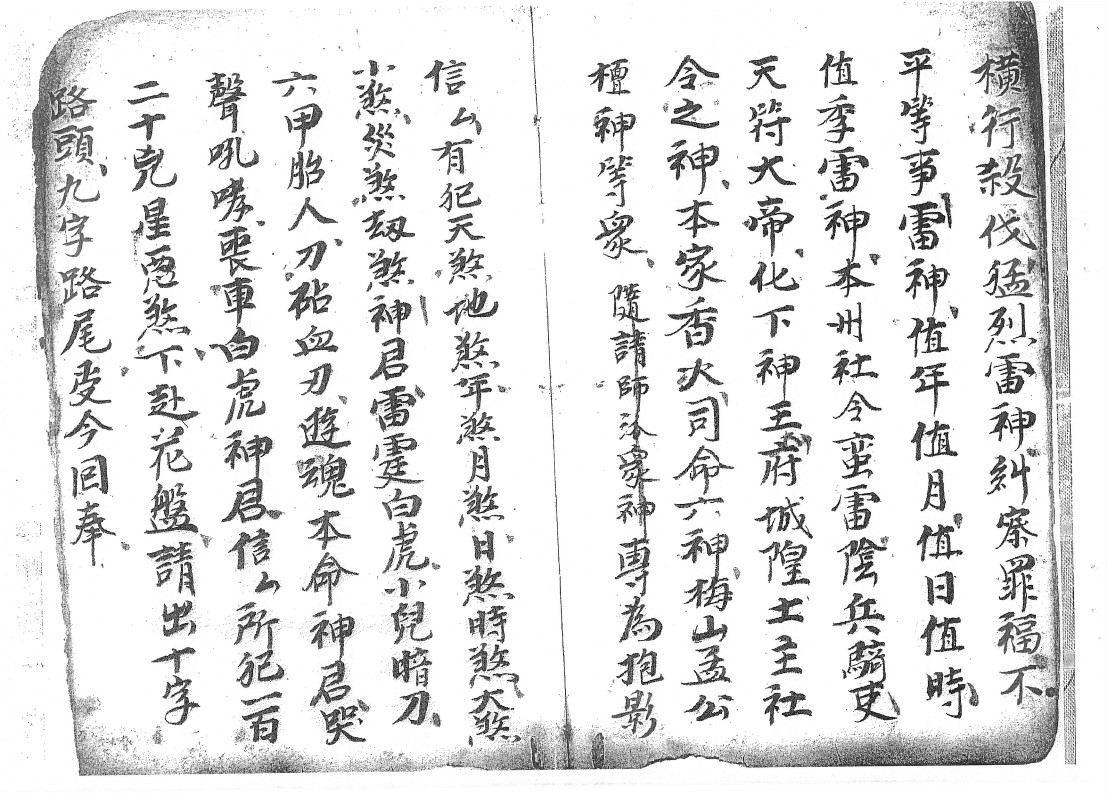 橫行殺伐猛烈雷神糾察罪福不
平等事雷神值年值月值日值時
值季雷神本州社令蛮雷陰兵騎吏
天符大帝化下神王府城隍土主社
令之神本家香火司命六神梅山孟公
檀神等眾 隨請師公眾神專為抱影
信厶有犯天煞地煞年煞月煞日煞時煞大煞
小煞災煞劫煞神君雷霆白虎小兒暗刀
六甲胎人刀砧血刃遊魂本命神君哭
聲吼哮喪車白虎神君信厶所犯一百
二十兇星惡煞下赴花盤請出十字
路頭九字路尾受今回奉